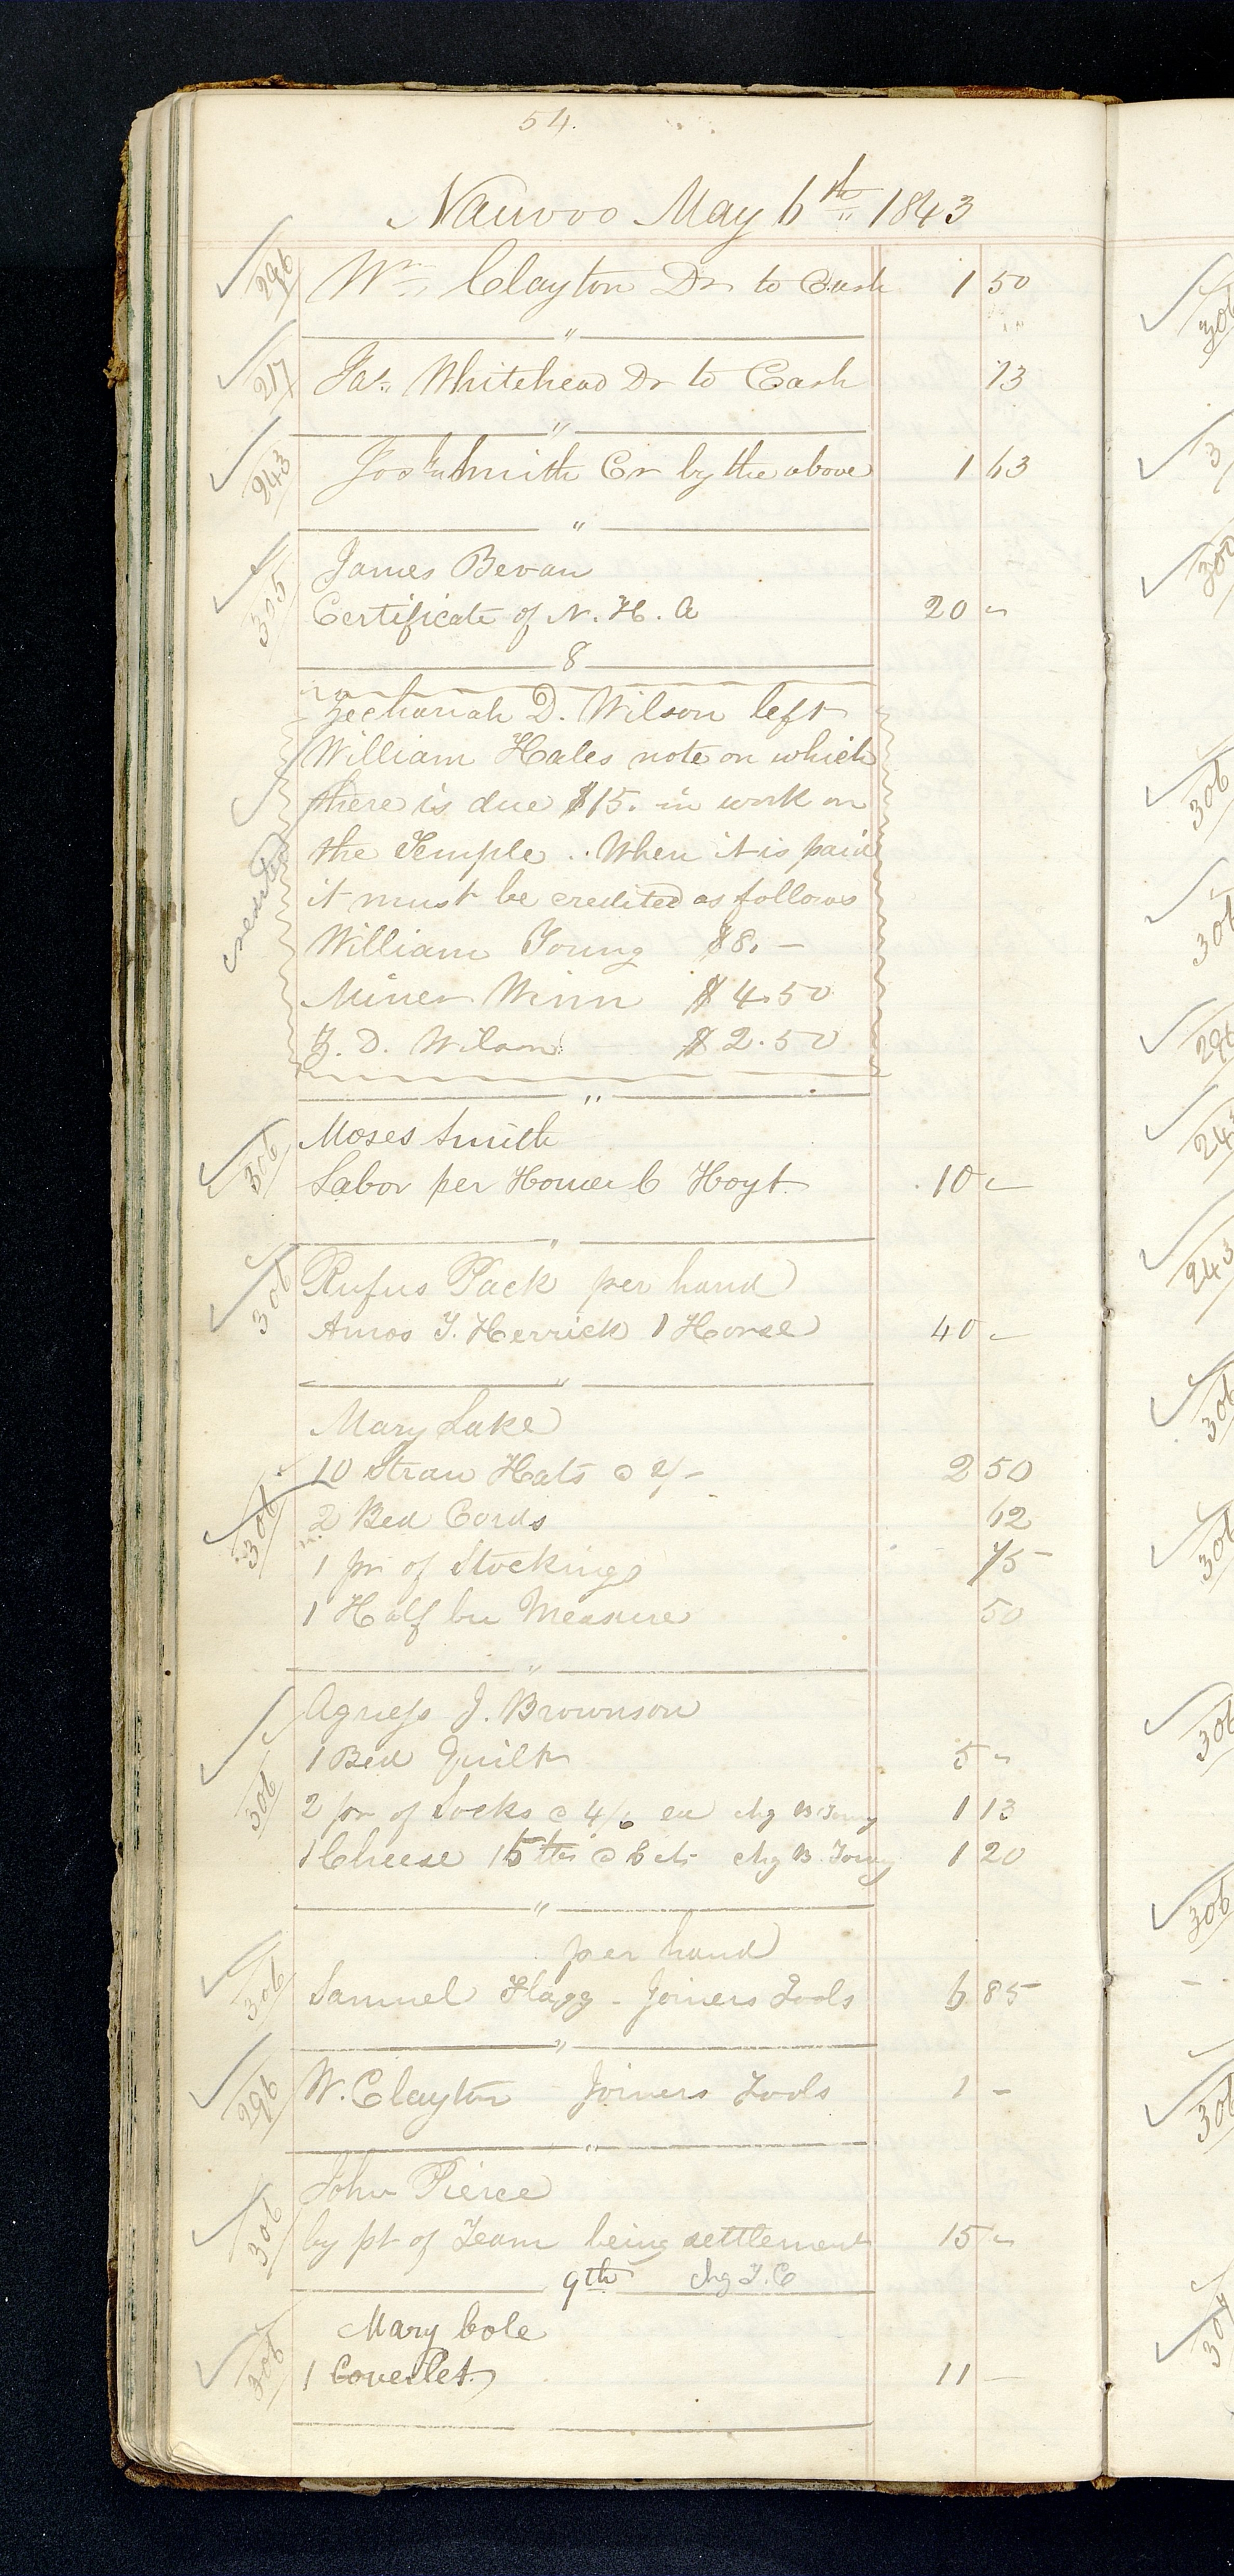 54.
Nauvoo May 6th 1843
296 Wm Clayton Dr to Cash 1 50
"
217 Jas. Whitehead Dr to Cash 13
"
243 Jos. Smith Cr by the above 1 63
"
305 James Bevan
Certificate of N. H. A 20 "
8
Zechariah D. Wilson left
William Hales note on which
there is due $15. in work on
the Temple .. When it is paid
it must be credited as follows
credited
William Young $8. –
Miner Winn $4.50
Z. D. Wilson $2.50
"
306 Moses Smith
Labor per Homer C Hoyt. 10 "
"
306 Rufus Pack per hand
Amos T. Herrick 1 Horse 40 "
"
Mary Lake
306 10 Straw Hats @ 2/- 2 50
2 Bed Cords 62
1 pr of Stockings 75
1 Half bu Measure 50
"
Agness J. Brownson
1 Bed Quilt 5 "
306 2 pr of Socks @ 4/6 ea chg B Young 1 13
1 Cheese 15 lbs @ 8 cts chg B. Young 1 20
"
per hand
306 Samuel Flagg - Joiners Tools 6 85
"
296 W. Clayton Joiners Tools 1 –
"
John Pierce
306 by pt of Team being settlement 15 "
9th chg T. C
Mary Cole
306 1 Coverlet. 11 –
306
3
306
306
296
243
243
306
306
306
306
306